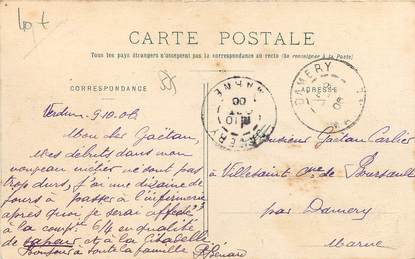 CARTE POSTALE
Tous les pays étrangers n'acceptent pas la correspondance au recto (Se renseigner à la Poste)
CORRESPONDANCE
ADRESSE
DAMERY
MARNE
Verdun 9.10.06
Mon cher Gaëtan,
Mes débuts dans mon
nouveau métier ne sont pas
trop durs, j'ai une dizaine de
jours à passer à l'infirmerie
après quoi je serai affecté
à la en qualité
de sapeur et à la citadelle
Bonjour à toute la famille Bénard
Monsieur Gaëtan Carlier
à Villesaint Cne de Boursault
par Damery
Marne